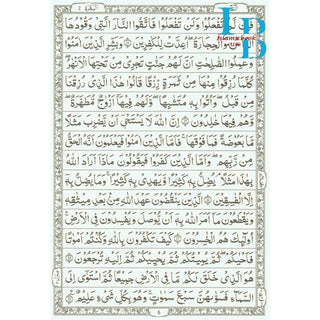 البقرة ٢
لم تفعلوا ولن تفعلوا فاتقوا النار التي وقودها
والحجارة اعدت للكفرين وبشر الذين امنوا
وعملوا الصلحت ان لهم جنت تجري من تحتها الانهر
كلما رزقوا منها من ثمرة رزقا قالوا هذا الذي رزقنا
من قبل واتوا به متشابها ولهم فيها ازواج مطهرة
وهم فيها خلدون ان الله لا يستحي ان يضرب مثلا
ما بعوضة فما فوقها فاما الذين امنوا فيعلمون انه الحق
من ربهم واما الذين كفروا فيقولون ماذا اراد الله
بهذا مثلا يضل به كثيرا ويهدي به كثيرا وما يضل به
الا الفسقين الذين ينقضون عهد الله من بعد ميثقه
ويقطعون ما امر الله به ان يوصل ويفسدون في الارض
اولئك هم الخسرون كيف تكفرون بالله وكنتم امواتا
فاحياكم ثم يميتكم ثم يحييكم ثم اليه ترجعون
هو الذي خلق لكم ما في الارض جميعا ثم استوى الى
السماء فسوىهن سبع سموت وهو بكل شيء عليم
6